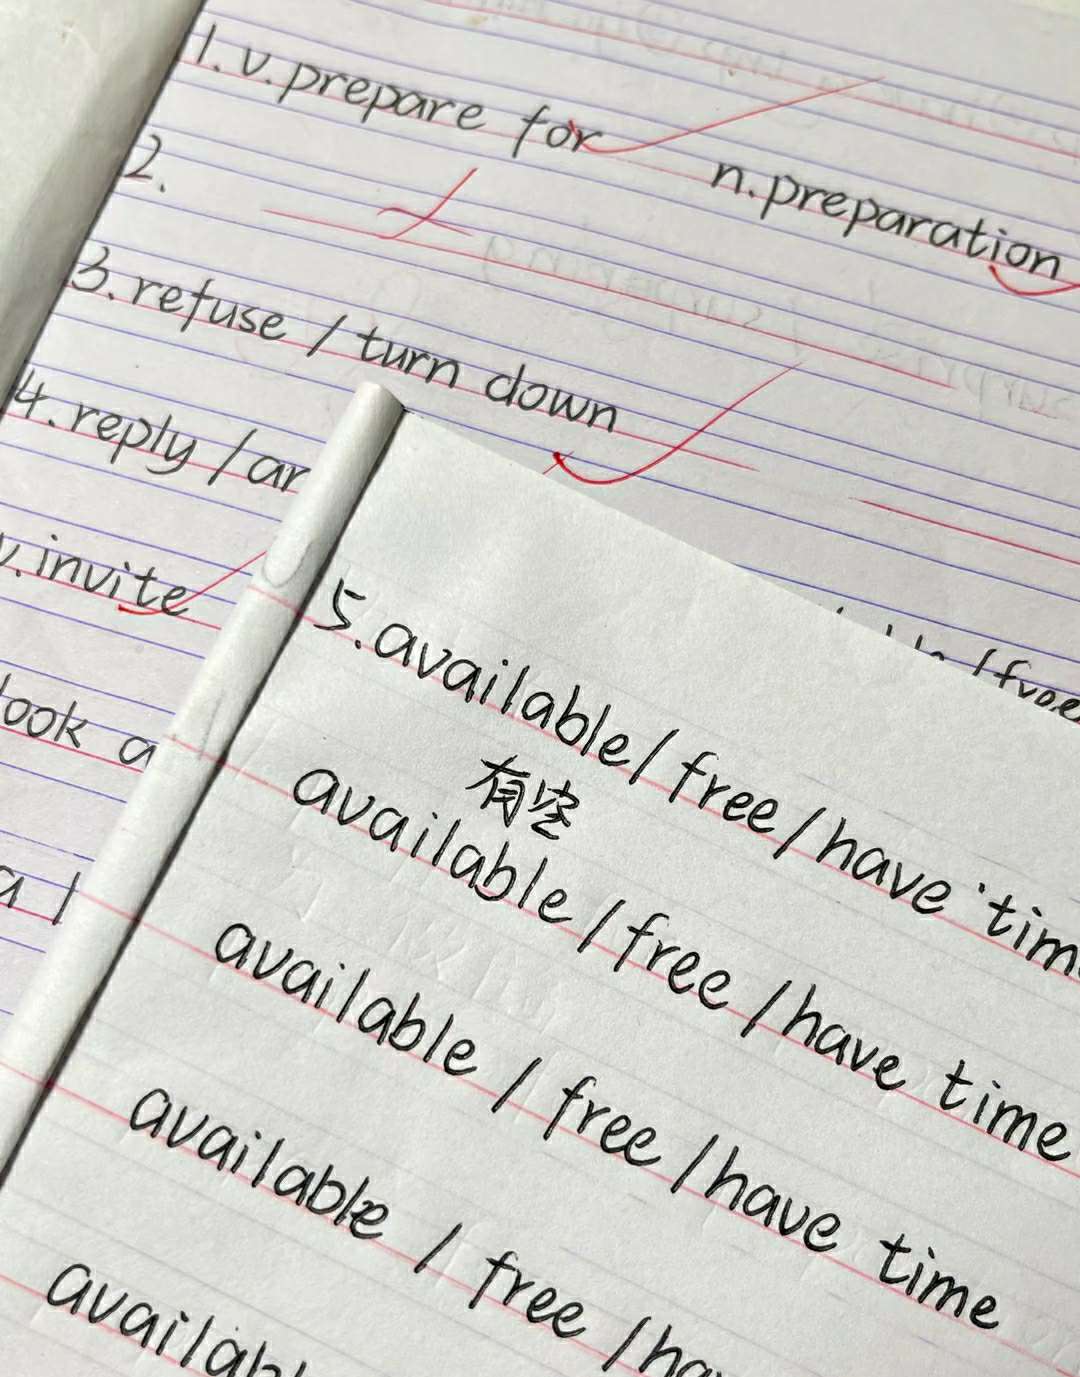 1. v. prepare for n. preparation
2.
3. refuse / turn down
4. reply /
v. invite
look a
a l
/ free
5. available / free / have
有空
available / free / have time
available / free / have time
available / free /